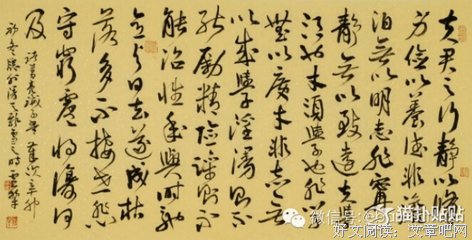 夫君子之行静以修
身俭以养德非淡
泊无以明志非宁
静无以致远夫学
须静也才须学也非学
无以广才非志无
以成学淫漫则不
能励精险躁则不
能治性年与时驰
意与日去遂成枯
落多不接世悲
守穷庐将复何
及
诸葛亮诫子书 岁次辛卯
微信号
猫扑贴贴
好文阅读：文章吧网